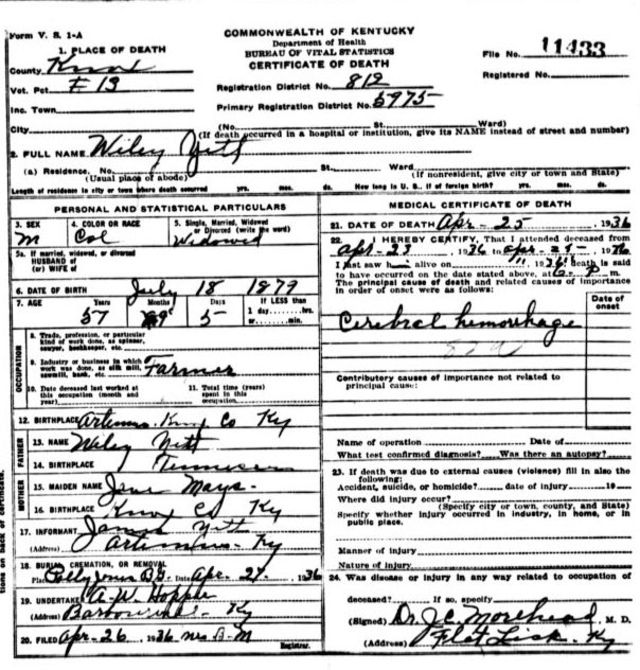 Form V. S. 1-A
COMMONWEALTH OF KENTUCKY
Department of Health
BUREAU OF VITAL STATISTICS
CERTIFICATE OF DEATH
File No. 11433
Registered No.
1. PLACE OF DEATH
County Knox
Vot. Pct. F 13
Inc. Town
City
Registration District No. 812
Primary Registration District No. 5975
(No. St. Ward)
(If death occurred in a hospital or institution, give its NAME instead of street and number)
2. FULL NAME Wiley
(a) Residence, No. St. Ward
(Usual place of abode) (If nonresident, give city or town and State)
Length of residence in city or town where death occurred yrs. mos. ds. How long in U. S., if of foreign birth? yrs. mos. ds.
PERSONAL AND STATISTICAL PARTICULARS
3. SEX
M
4. COLOR OR RACE
Col
5. Single, Married, Widowed or Divorced (write the word)
Widowed
5a. If married, widowed, or divorced
HUSBAND of
(or) WIFE of
6. DATE OF BIRTH July 18 1879
7. AGE Years Months Days If LESS than
57 5 1 day hrs.
or min.
OCCUPATION
8. Trade, profession, or particular
kind of work done, as spinner,
sawyer, bookkeeper, etc.
9. Industry or business in which
work was done, as silk mill,
sawmill, bank, etc. Farmer
10. Date deceased last worked at
this occupation (month and
year)
11. Total time (years)
spent in this
occupation
12. BIRTHPLACE Artemus Knox Co Ky
FATHER
13. NAME
14. BIRTHPLACE Tennessee
MOTHER
15. MAIDEN NAME Jane Mays
16. BIRTHPLACE Knox Co Ky
17. INFORMANT James
(Address) Artemus Ky
18. BURIAL, CREMATION, OR REMOVAL
Place Polly Jones B.G. Date Apr. 27 1936
19. UNDERTAKER A. W. Hopper
(Address) Barbourville Ky
20. FILED Apr-26 1936 Mrs B-M
Registrar.
MEDICAL CERTIFICATE OF DEATH
21. DATE OF DEATH Apr-25 1936
22. I HEREBY CERTIFY, That I attended deceased from
Apr-23 1936 to Apr-25- 1936
I last saw h alive on 1936 death is said
to have occurred on the date stated above, at 6. P m.
The principal cause of death and related causes of importance
in order of onset were as follows:
Date of
onset
Cerebral hemorrhage
Contributory causes of importance not related to
principal cause:
Name of operation Date of
What test confirmed diagnosis? Was there an autopsy?
23. If death was due to external causes (violence) fill in also the
following:
Accident, suicide, or homicide? date of injury 19
Where did injury occur?
(Specify city or town, county, and State)
Specify whether injury occurred in industry, in home, or in
public place.
Manner of injury
Nature of injury
24. Was disease or injury in any way related to occupation of
deceased? If so, specify
(Signed) Dr. J. C. Morehead, M. D.
(Address) Flat Lick, Ky
tions on back of certificate.